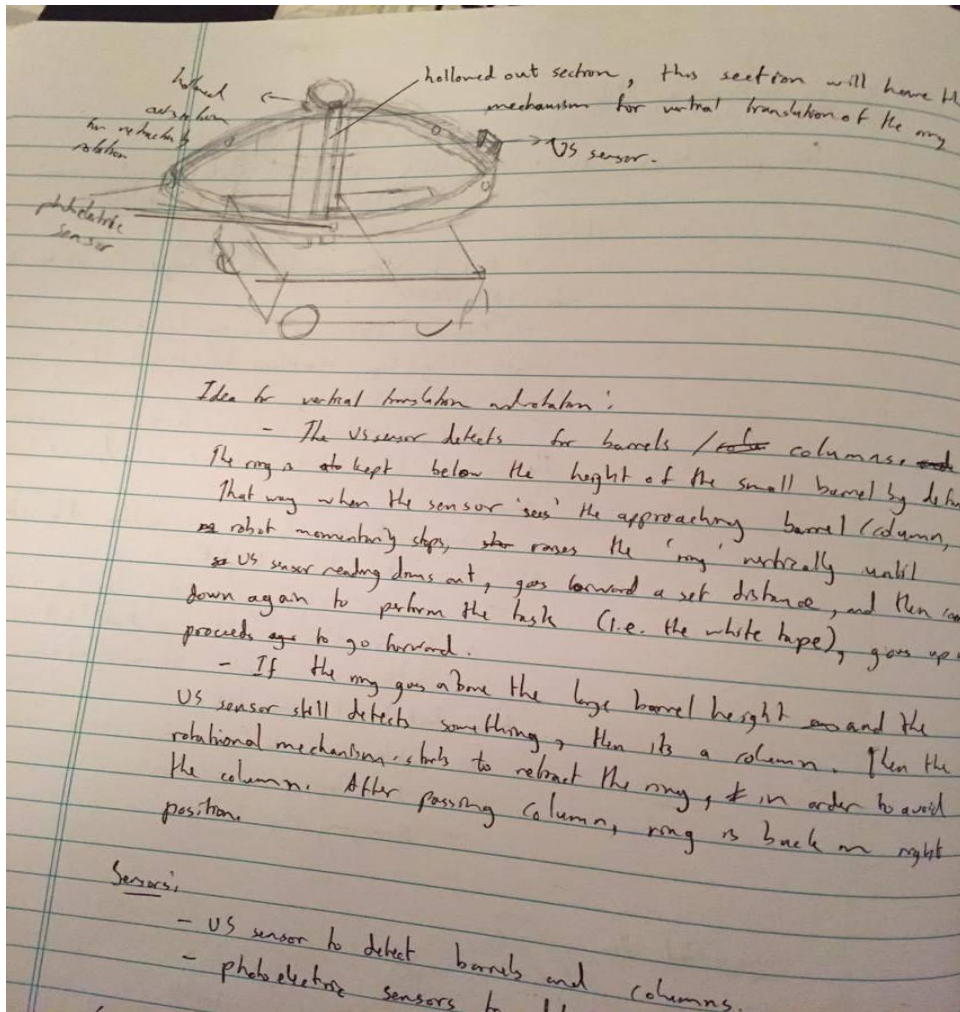 hollowed out section, this section will have
mechanism for vertical translation of the ring
US sensor.
rotation
photoelectric
sensor
Idea for vertical translation and rotation:
- The US sensor detects for barrels / columns.
The ring is kept below the height of the small barrel by
That way when the sensor 'sees' the approaching barrel/column,
robot momentarily stops, raises the 'ring' vertically until
US sensor reading drops out, goes forward a set distance, and then
down again to perform the task (i.e. the white tape), goes up
proceeds to go forward.
- If the ring goes above the large barrel height and the
US sensor still detects something, then its a column. Then the
rotational mechanism starts to retract the ring, in order to avoid
the column. After passing column, ring is back in right
position.
Sensors:
- US sensor to detect barrels and columns.
- photoelectric sensors to